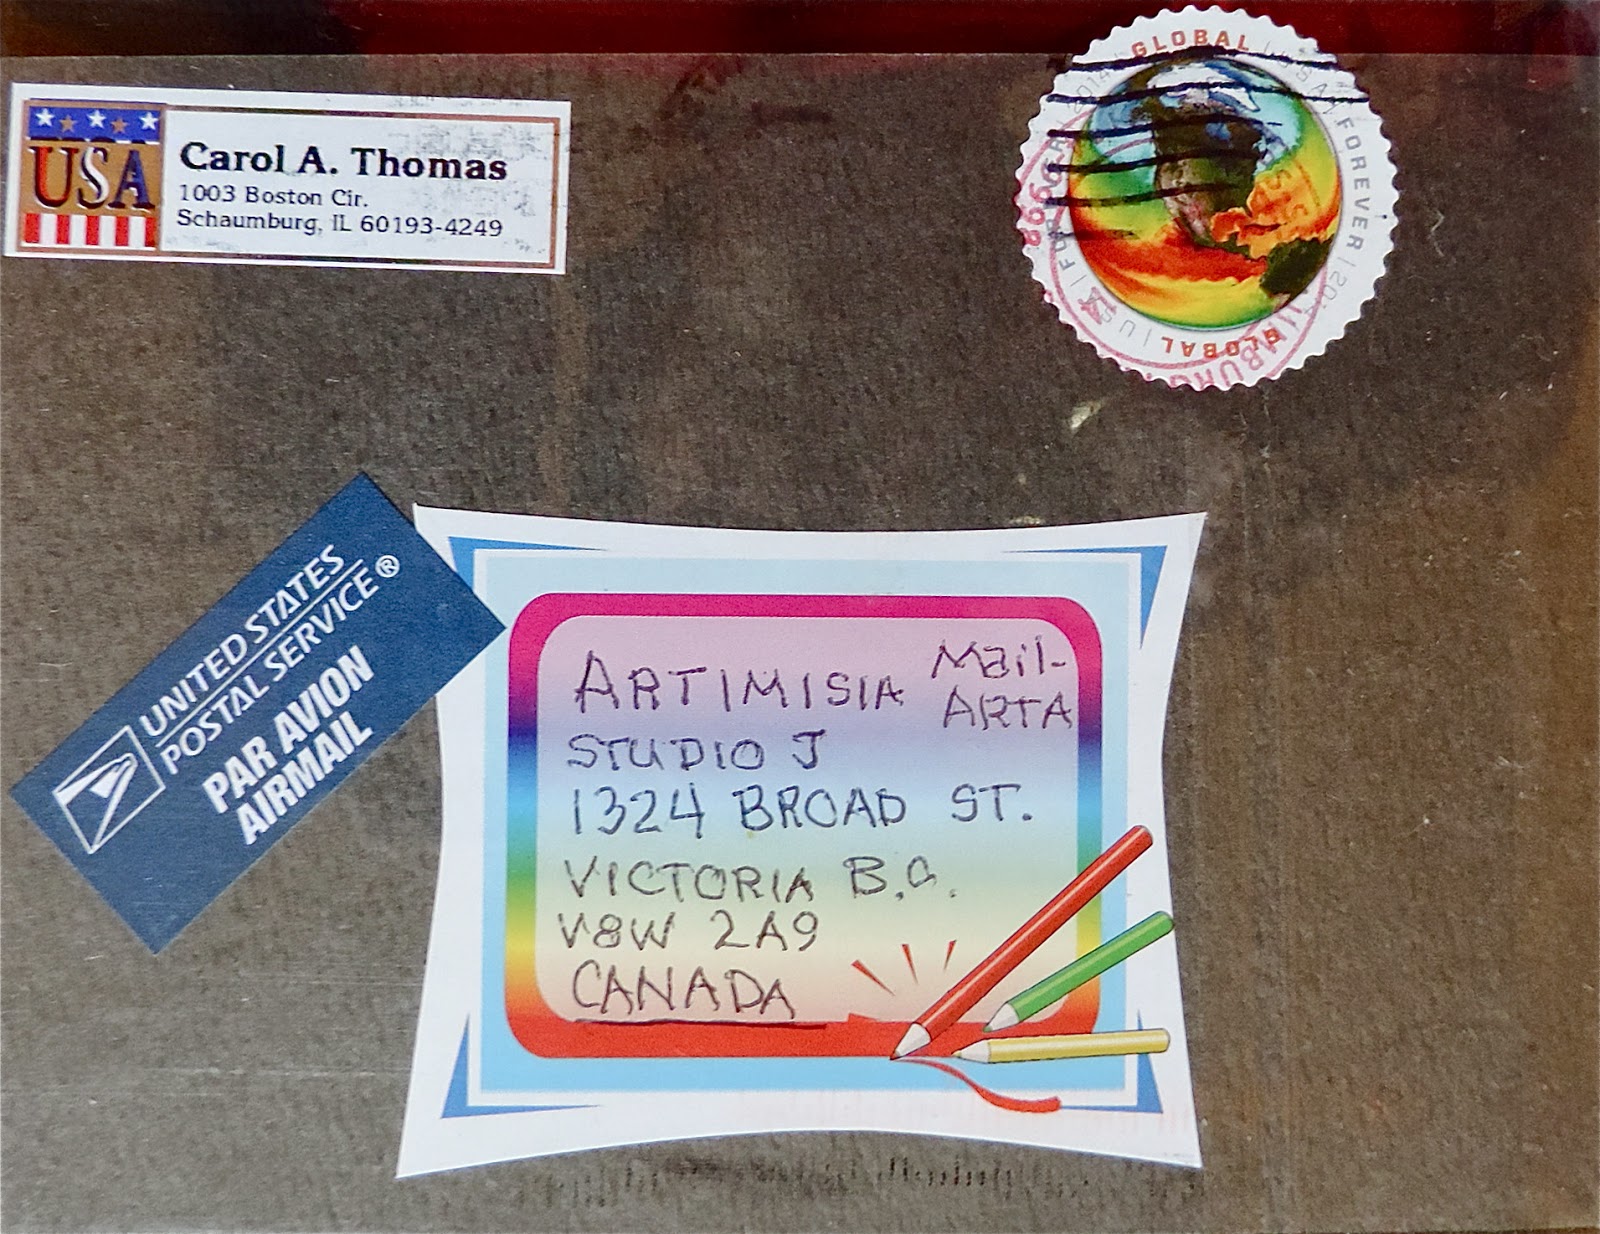 USA
Carol A. Thomas
1003 Boston Cir.
Schaumburg, IL 60193-4249
GLOBAL | USA | FOREVER | 2014
GLOBAL | USA | FOREVER | 2014
UNITED STATES
POSTAL SERVICE®
PAR AVION
AIRMAIL
ARTIMISIA Mail-
ARTA
STUDIO J
1324 BROAD ST.
VICTORIA B.C.
V8W 2A9
CANADA